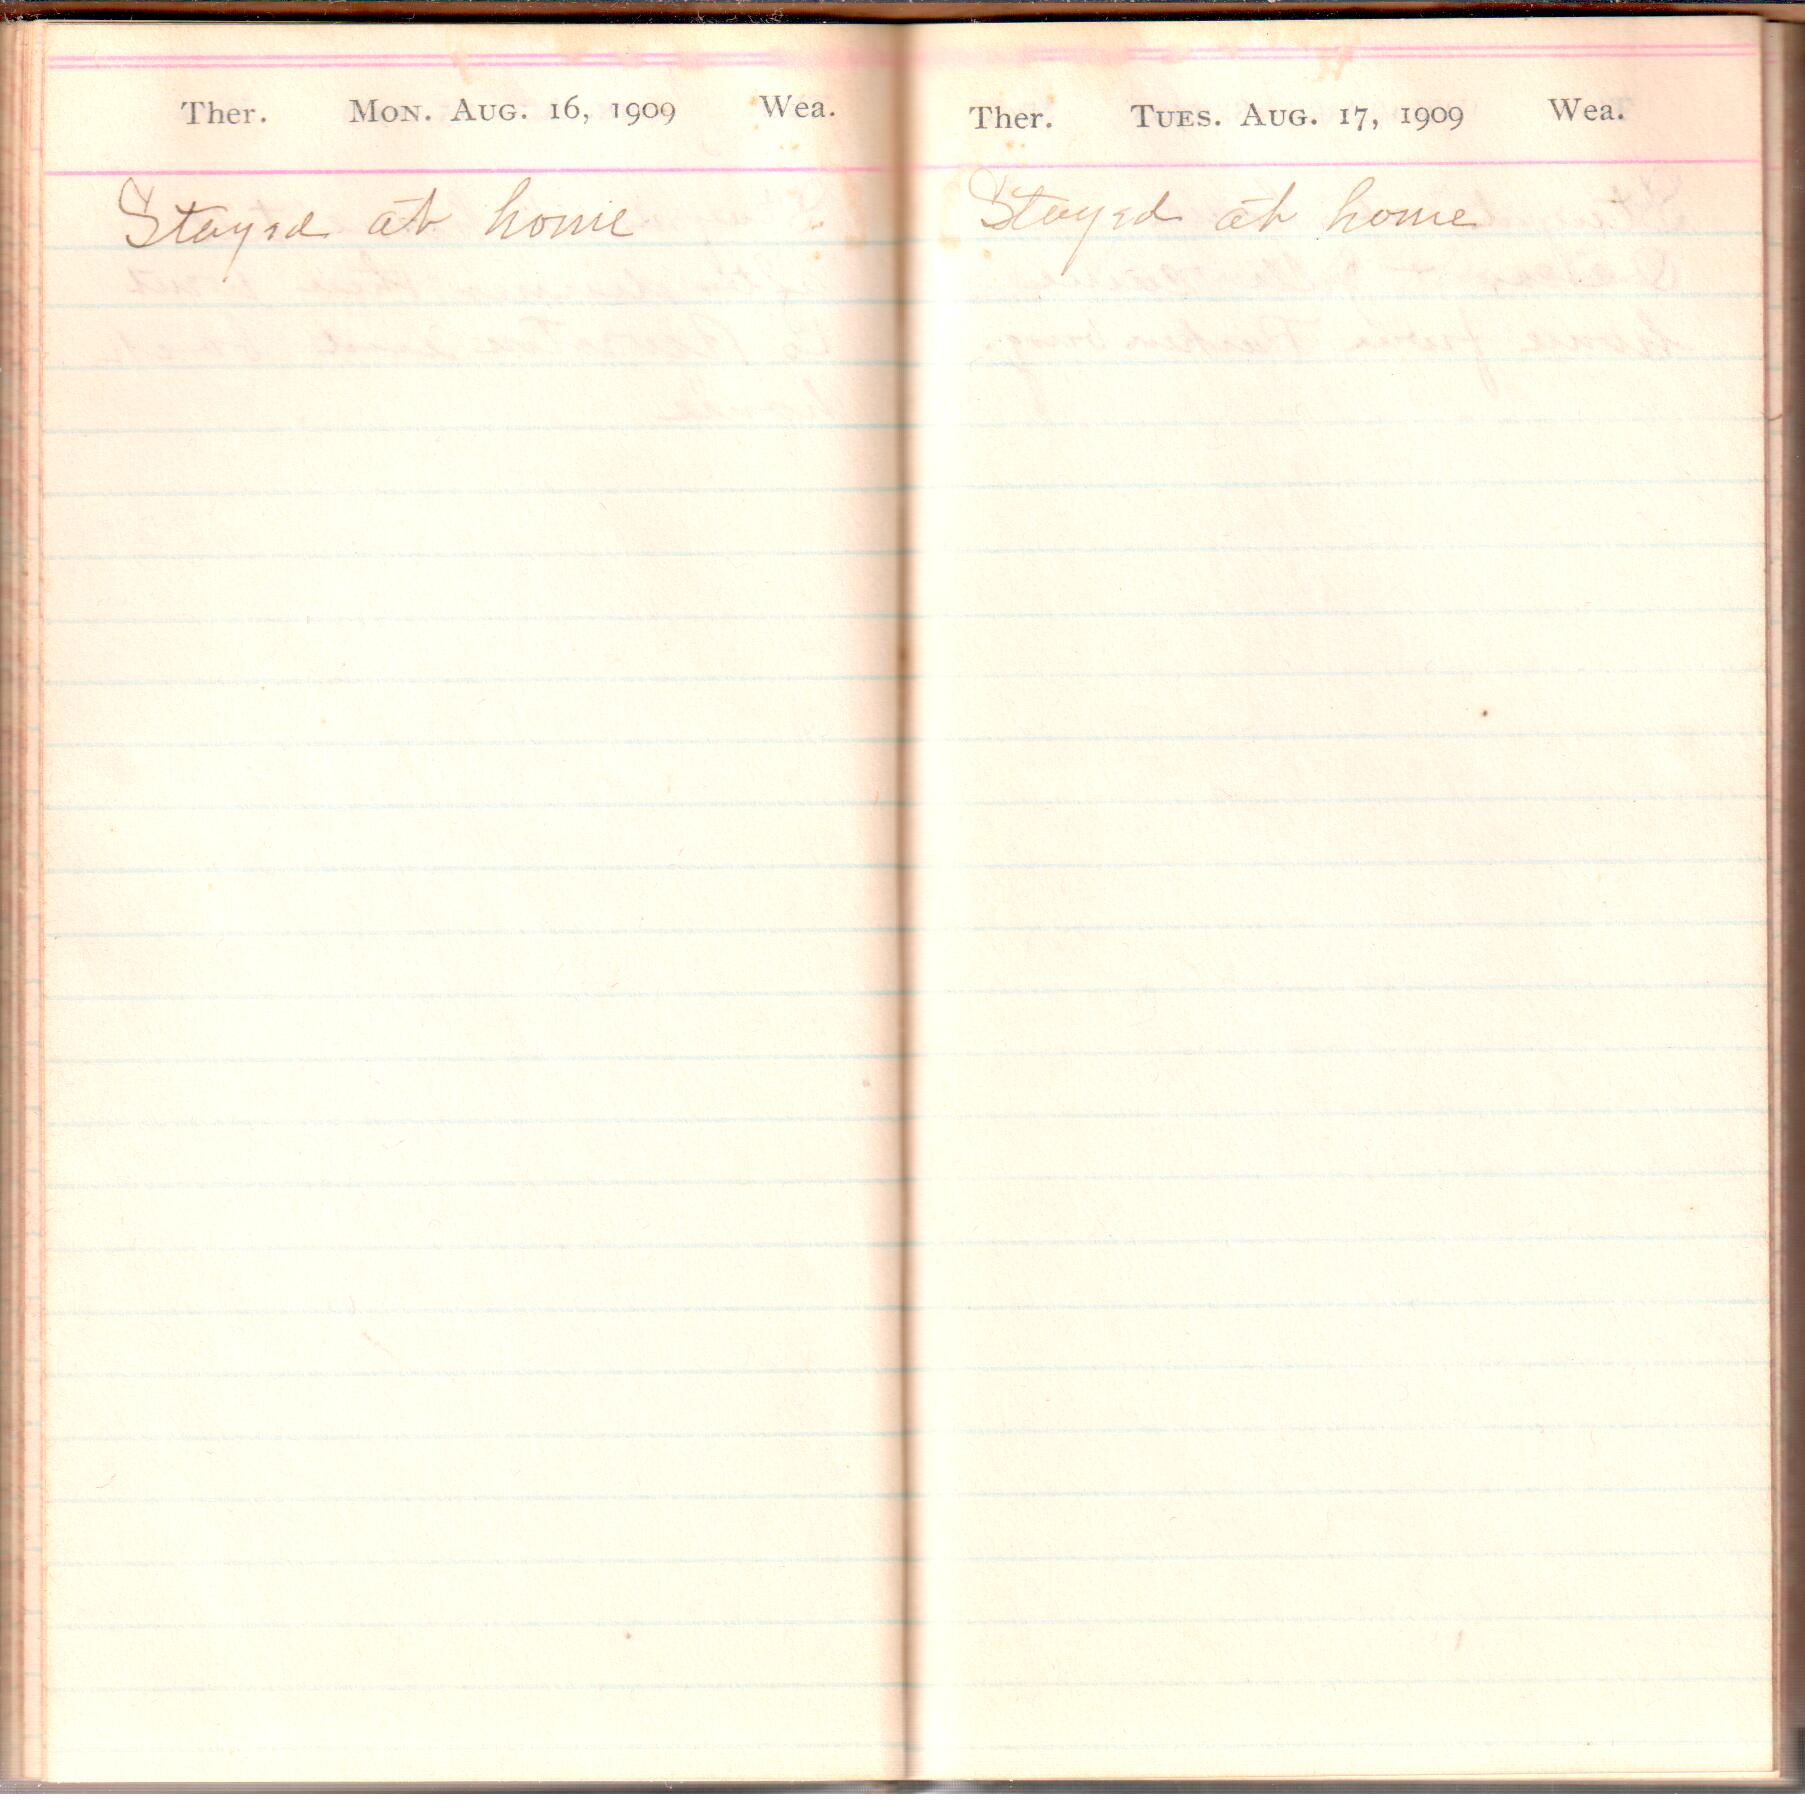 Ther. Mon. Aug. 16, 1909 Wea.
Stayed at home
Ther. Tues. Aug. 17, 1909 Wea.
Stayed at home